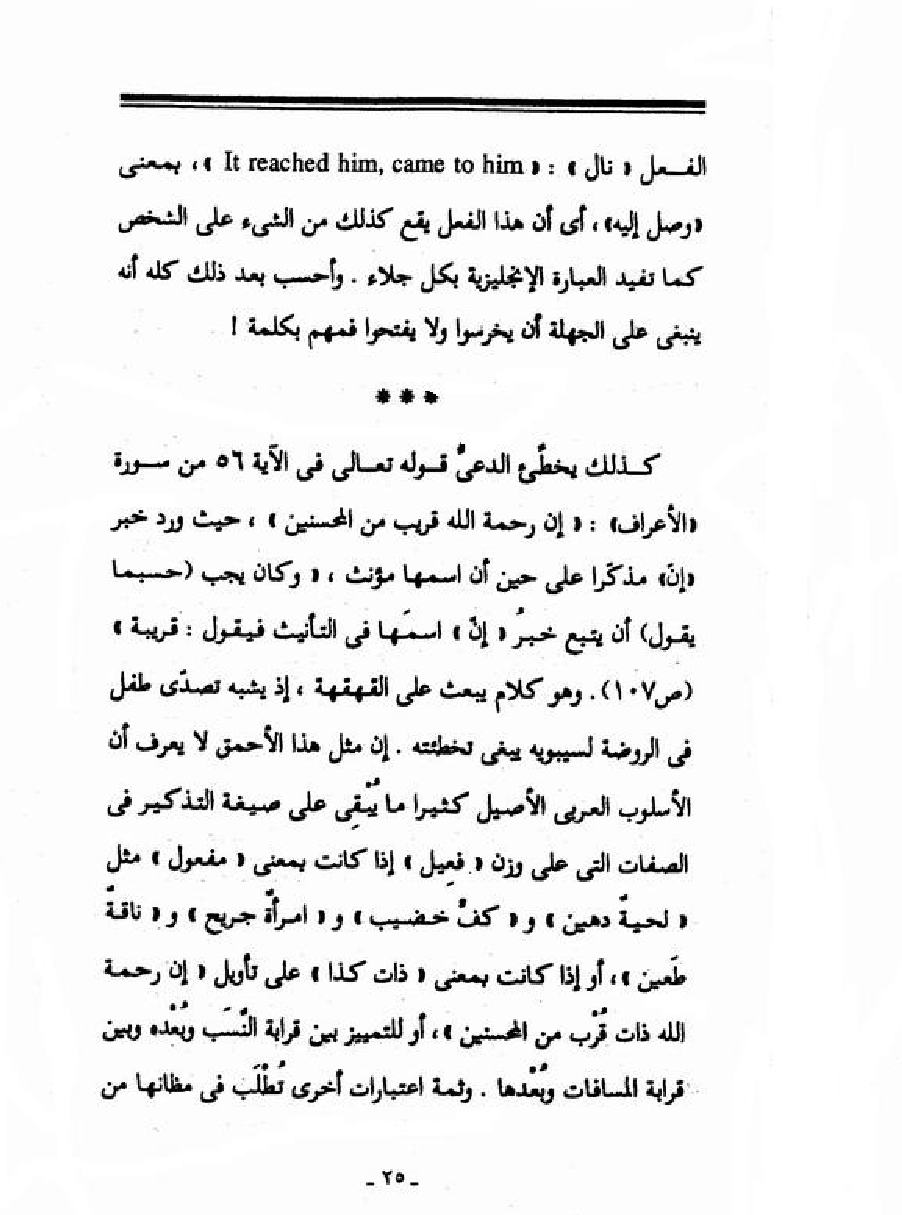 الفــعل « نال » : « It reached him, came to him » ، بمعنى
«وصل إليه» ، أى أن هذا الفعل يقع كذلك من الشىء على الشخص
كما تفيد العبارة الإنجليزية بكل جلاء . وأحسب بعد ذلك كله أنه
ينبغى على الجهلة أن يخرسوا ولا يفتحوا فمهم بكلمة !
* * *
كـذلك يخطِّئ الدعىُّ قـوله تعـالى فى الآية ٥٦ من سـورة
«الأعراف» : « إن رحمة الله قريب من المحسنين » ، حيث ورد خبر
«إنّ» مذكّرا على حين أن اسمها مؤنث ، « وكان يجب (حسبما
يقول) أن يتبع خبرُ « إنّ » اسمَها فى التأنيث فيقول : قريبة »
(ص١٠٧). وهو كلام يبعث على القهقهة ، إذ يشبه تصدّى طفل
فى الروضة لسيبويه يبغى تخطئته . إن مثل هذا الأحمق لا يعرف أن
الأسلوب العربى الأصيل كثيرا ما يُبْقِى على صيغة التذكير فى
الصفات التى على وزن « فعِيل » إذا كانت بمعنى « مفعول » مثل
« لحيةٌ دهين » و « كفٌّ خضيب » و « امرأةٌ جريح » و « ناقةٌ
طَعين » ، أو إذا كانت بمعنى « ذات كذا » على تأويل « إن رحمة
الله ذات قُرْب من المحسنين » ، أو للتمييز بين قرابة النَّسَب وبُعْده وبين
قرابة المسافات وبُعْدها . وثمة اعتبارات أخرى تُطْلَب فى مظانها من
ـ ٢٥ ـ